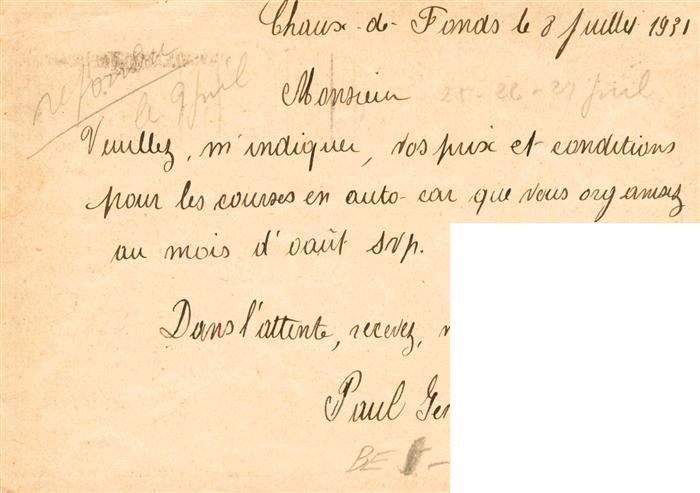 Chaux-de-Fonds le 8 juillet 1931
le 9 juil
Monsieur
25-26-27 juil
Veuillez, m'indiquer, vos prix et conditions
pour les courses en auto-car que vous organisez
au mois d'août svp.
Dans l'attente, recevez,
Paul
BE